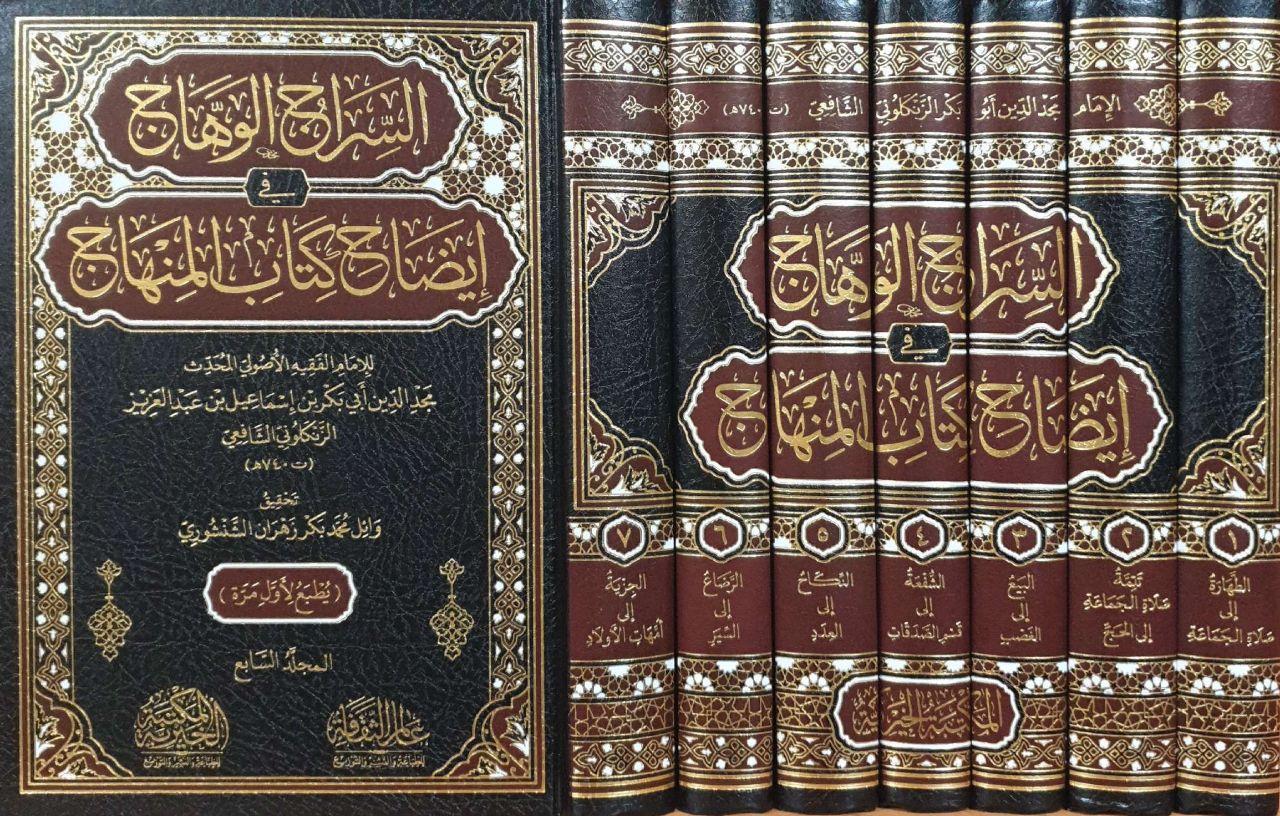 السِّرَاجُ الوَهَّاجُ
في
إيضَاحِ كِتَابِ المِنْهَاجِ
للإمَام الفَقيه الأُصُوليّ المُحَدّث
مَجْد الدّين أَبي بَكْر بن إسْمَاعيل بن عَبد العَزيز
الزَّنْكَلُوني الشَّافعيّ
(ت ٧٤٠هـ)
تَحقِيقُ
وَائِل مُحَمَّد بَكْر زَهْرَان الشَّنْشُوريّ
( يُطْبَعُ لأوَّل مَرَّة )
المجلد السَّابع
عالم الثقافة
للطباعة والنشر والتوزيع
المكتبة الخيرية
للطباعة والنشر والتوزيع
الإمَام مجد الدّين أبو بكر الزنكلوني الشَّافعيّ (ت ٧٤٠هـ)
السِّرَاجُ الوَهَّاجُ
في
إيضَاحِ كِتَابِ المِنْهَاجِ
١
الطَّهَارَة
إلى
صَلاة الجَمَاعَة
٢
تَتِمَّة
صَلاة الجَمَاعَة
إلى الحَجّ
٣
البَيْع
إلى
الغَصْب
٤
الشُّفْعَة
إلى
قَسْم الصَّدَقَات
٥
النّكَاح
إلى
العِدَد
٦
الرَّضَاع
إلى
السِّيَر
٧
الجِزيَة
إلى
أُمَّهَات الأَوْلاد
المَكتَبَةُ الخَيْريَّةُ